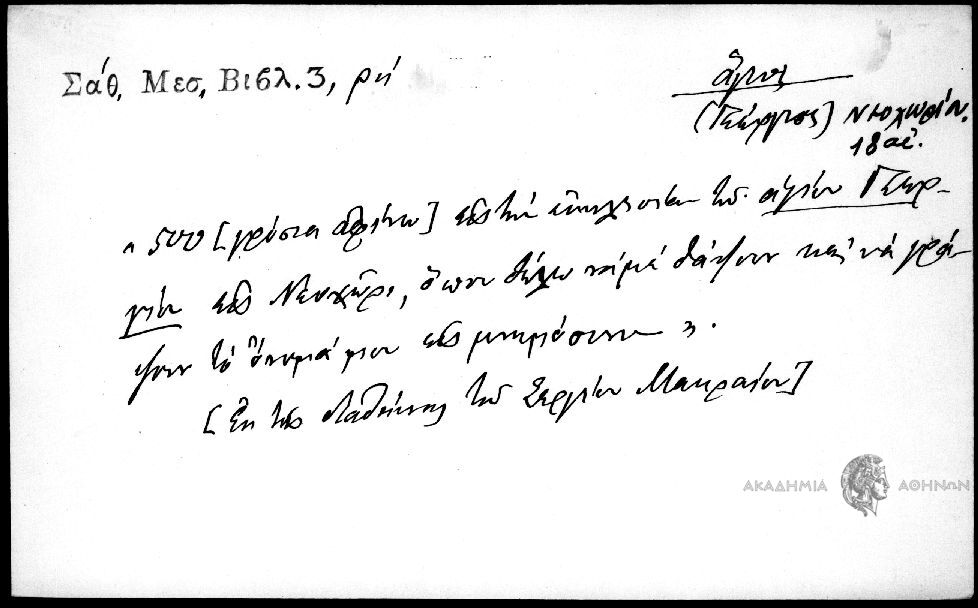 Σάθ. Μεσ. Βιβλ. 3, ρή
ἅγιος
(Γεώργιος) Νεοχωρίου.
18 αἰ.
« 500 [γρόσια ἀφίνω] εἰς τὴν ἐκκλησίαν τοῦ ἁγίου Γεωρ-
γίου εἰς Νεοχῶρι, ὅπου θέλω νὰ μὲ θάψουν καὶ νὰ γρά-
ψουν τὸ ὄνομά μου εἰς μνημόσυνον ».
[Ἐκ τῆς διαθήκης τοῦ Σεργίου Μακραίου]
ΑΚΑΔΗΜΙΑ ΑΘΗΝΩΝ